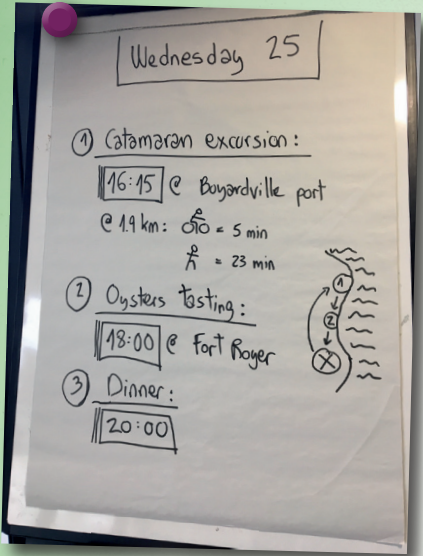 Wednesday 25
1 Catamaran excursion:
16:15 @ Boyardville port
@ 1.9 km: = 5 min
= 23 min
2 Oysters tasting:
18:00 @ Fort Royer
3 Dinner:
20:00
1
2
X